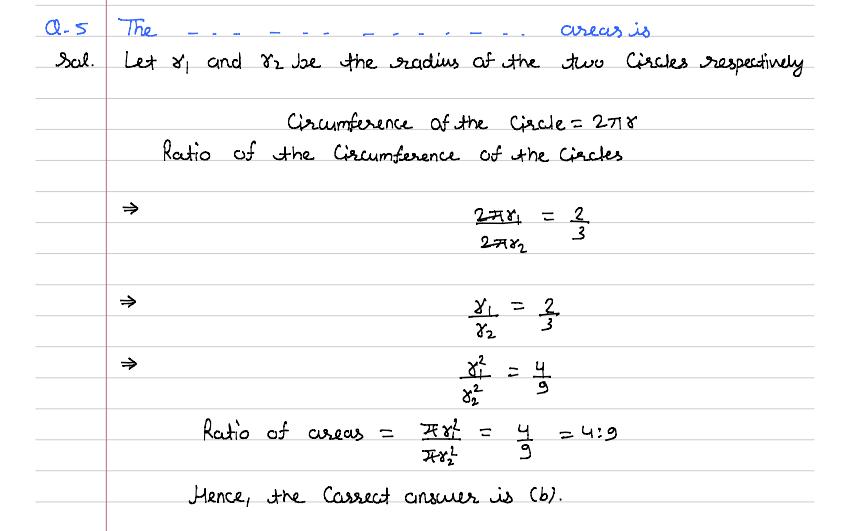 Q-5 The _ _ _ _ _ _ _ _ _ _ _ _ areas is
Sol. Let r₁ and r₂ be the radius of the two Circles respectively
Circumference of the Circle = 2πr
Ratio of the Circumference of the Circles
⇒ 2πr₁/2πr₂ = 2/3
⇒ r₁/r₂ = 2/3
⇒ r₁²/r₂² = 4/9
Ratio of areas = πr₁²/πr₂² = 4/9 = 4:9
Hence, the Correct answer is (b).